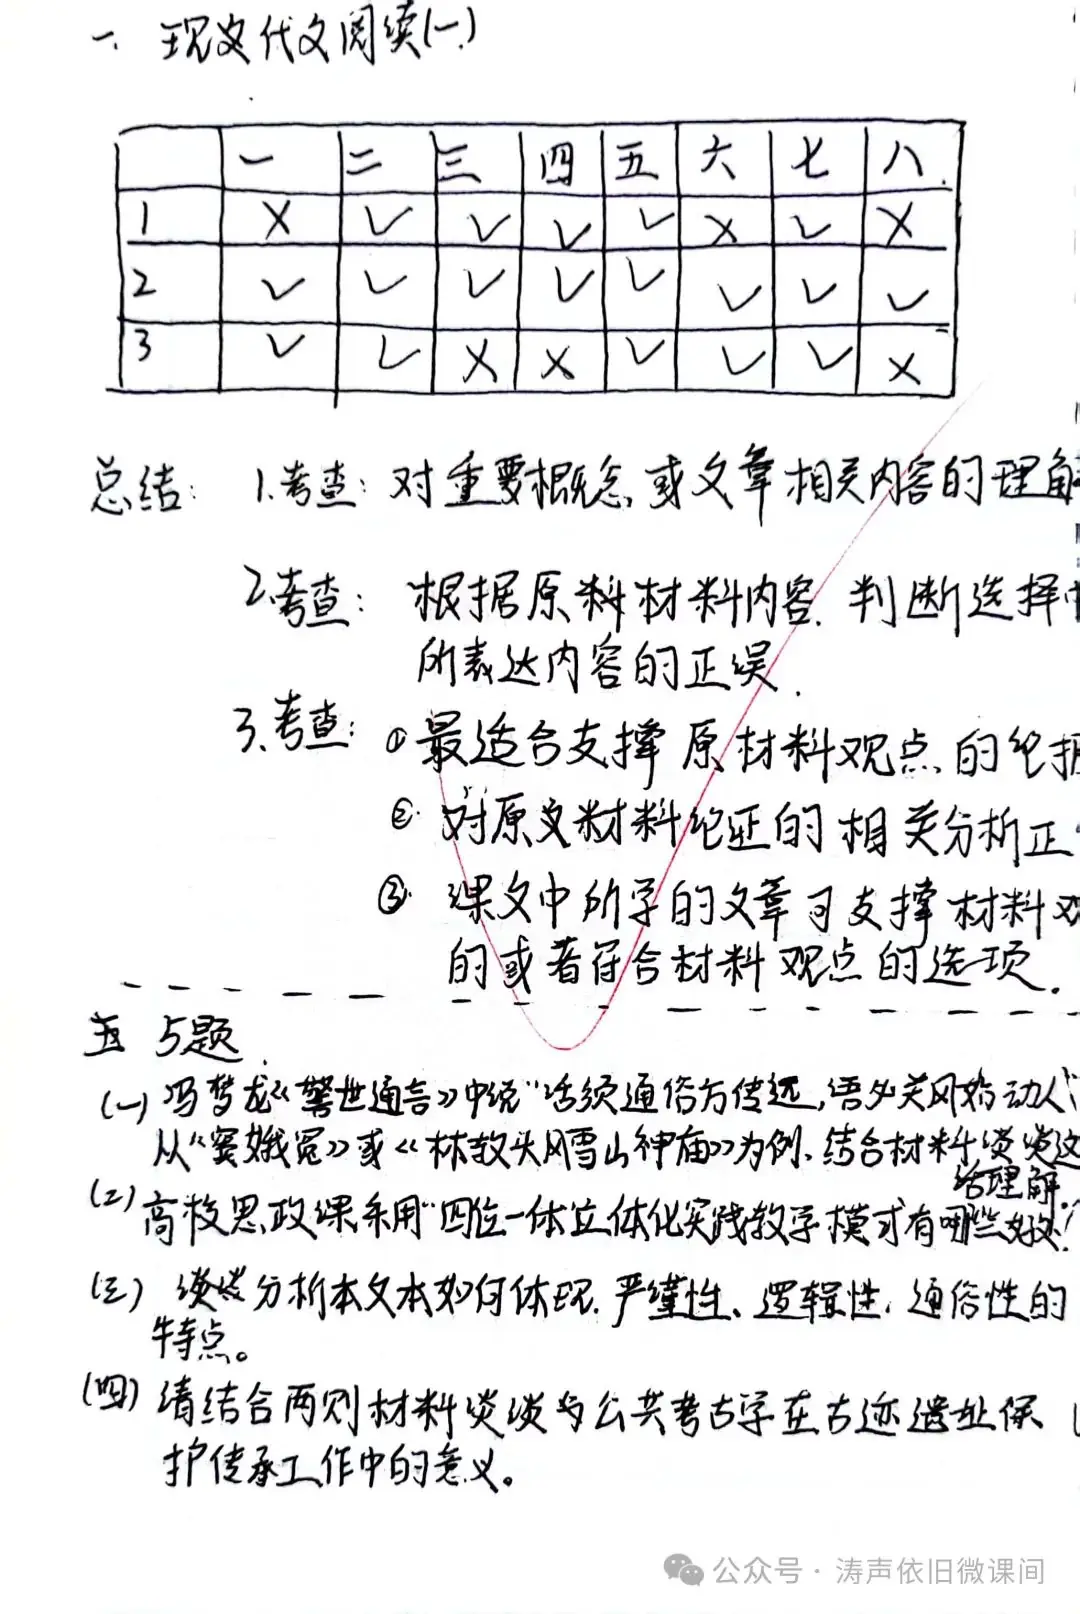 一. 现文代文阅读(一)
一 二 三 四 五 六 七 八
1 X ✓ ✓ ✓ ✓ X ✓ X
2 ✓ ✓ ✓ ✓ ✓ ✓ ✓ ✓
3 ✓ ✓ X X ✓ ✓ ✓ X
总结: 1.考查: 对重要概念或文章相关内容的理解
2.考查: 根据原料材料内容.判断选择
所表达内容的正误.
3.考查: ①最适合支撑原材料观点的论据
② 对原文材料论证的相关分析正
③ 课文中所学的文章可支撑材料观
的或者符合材料观点的选项.
五 5题
(一)冯梦龙《警世通言》中说"话须通俗方传远,语必关风始动人
从"窦娥冤》或《林教头风雪山神庙》为例,结合材料谈谈这
话理解.
(二)高校思政课采用"四位一体立体化实践教学模式有哪些好处?
(三) 谈谈分析本文本如何体现.严谨性、逻辑性,通俗性的
特点。
(四)请结合两则材料谈谈与公共考古学在古迹遗址保
护传承工作中的意义。
公众号·涛声依旧微课间